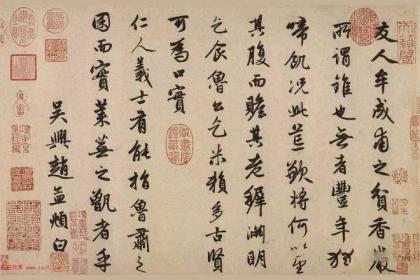 友人牟成甫之貧香嚴
所謂錐也無者豐年猶
啼飢況此荒歉將何以堅
其腹而贍其老穉淵明
乞食魯公乞米賴多古賢
可為口實
仁人義士有能指魯肅之
囷而實萊蕪之甑者乎
吳興趙孟頫白